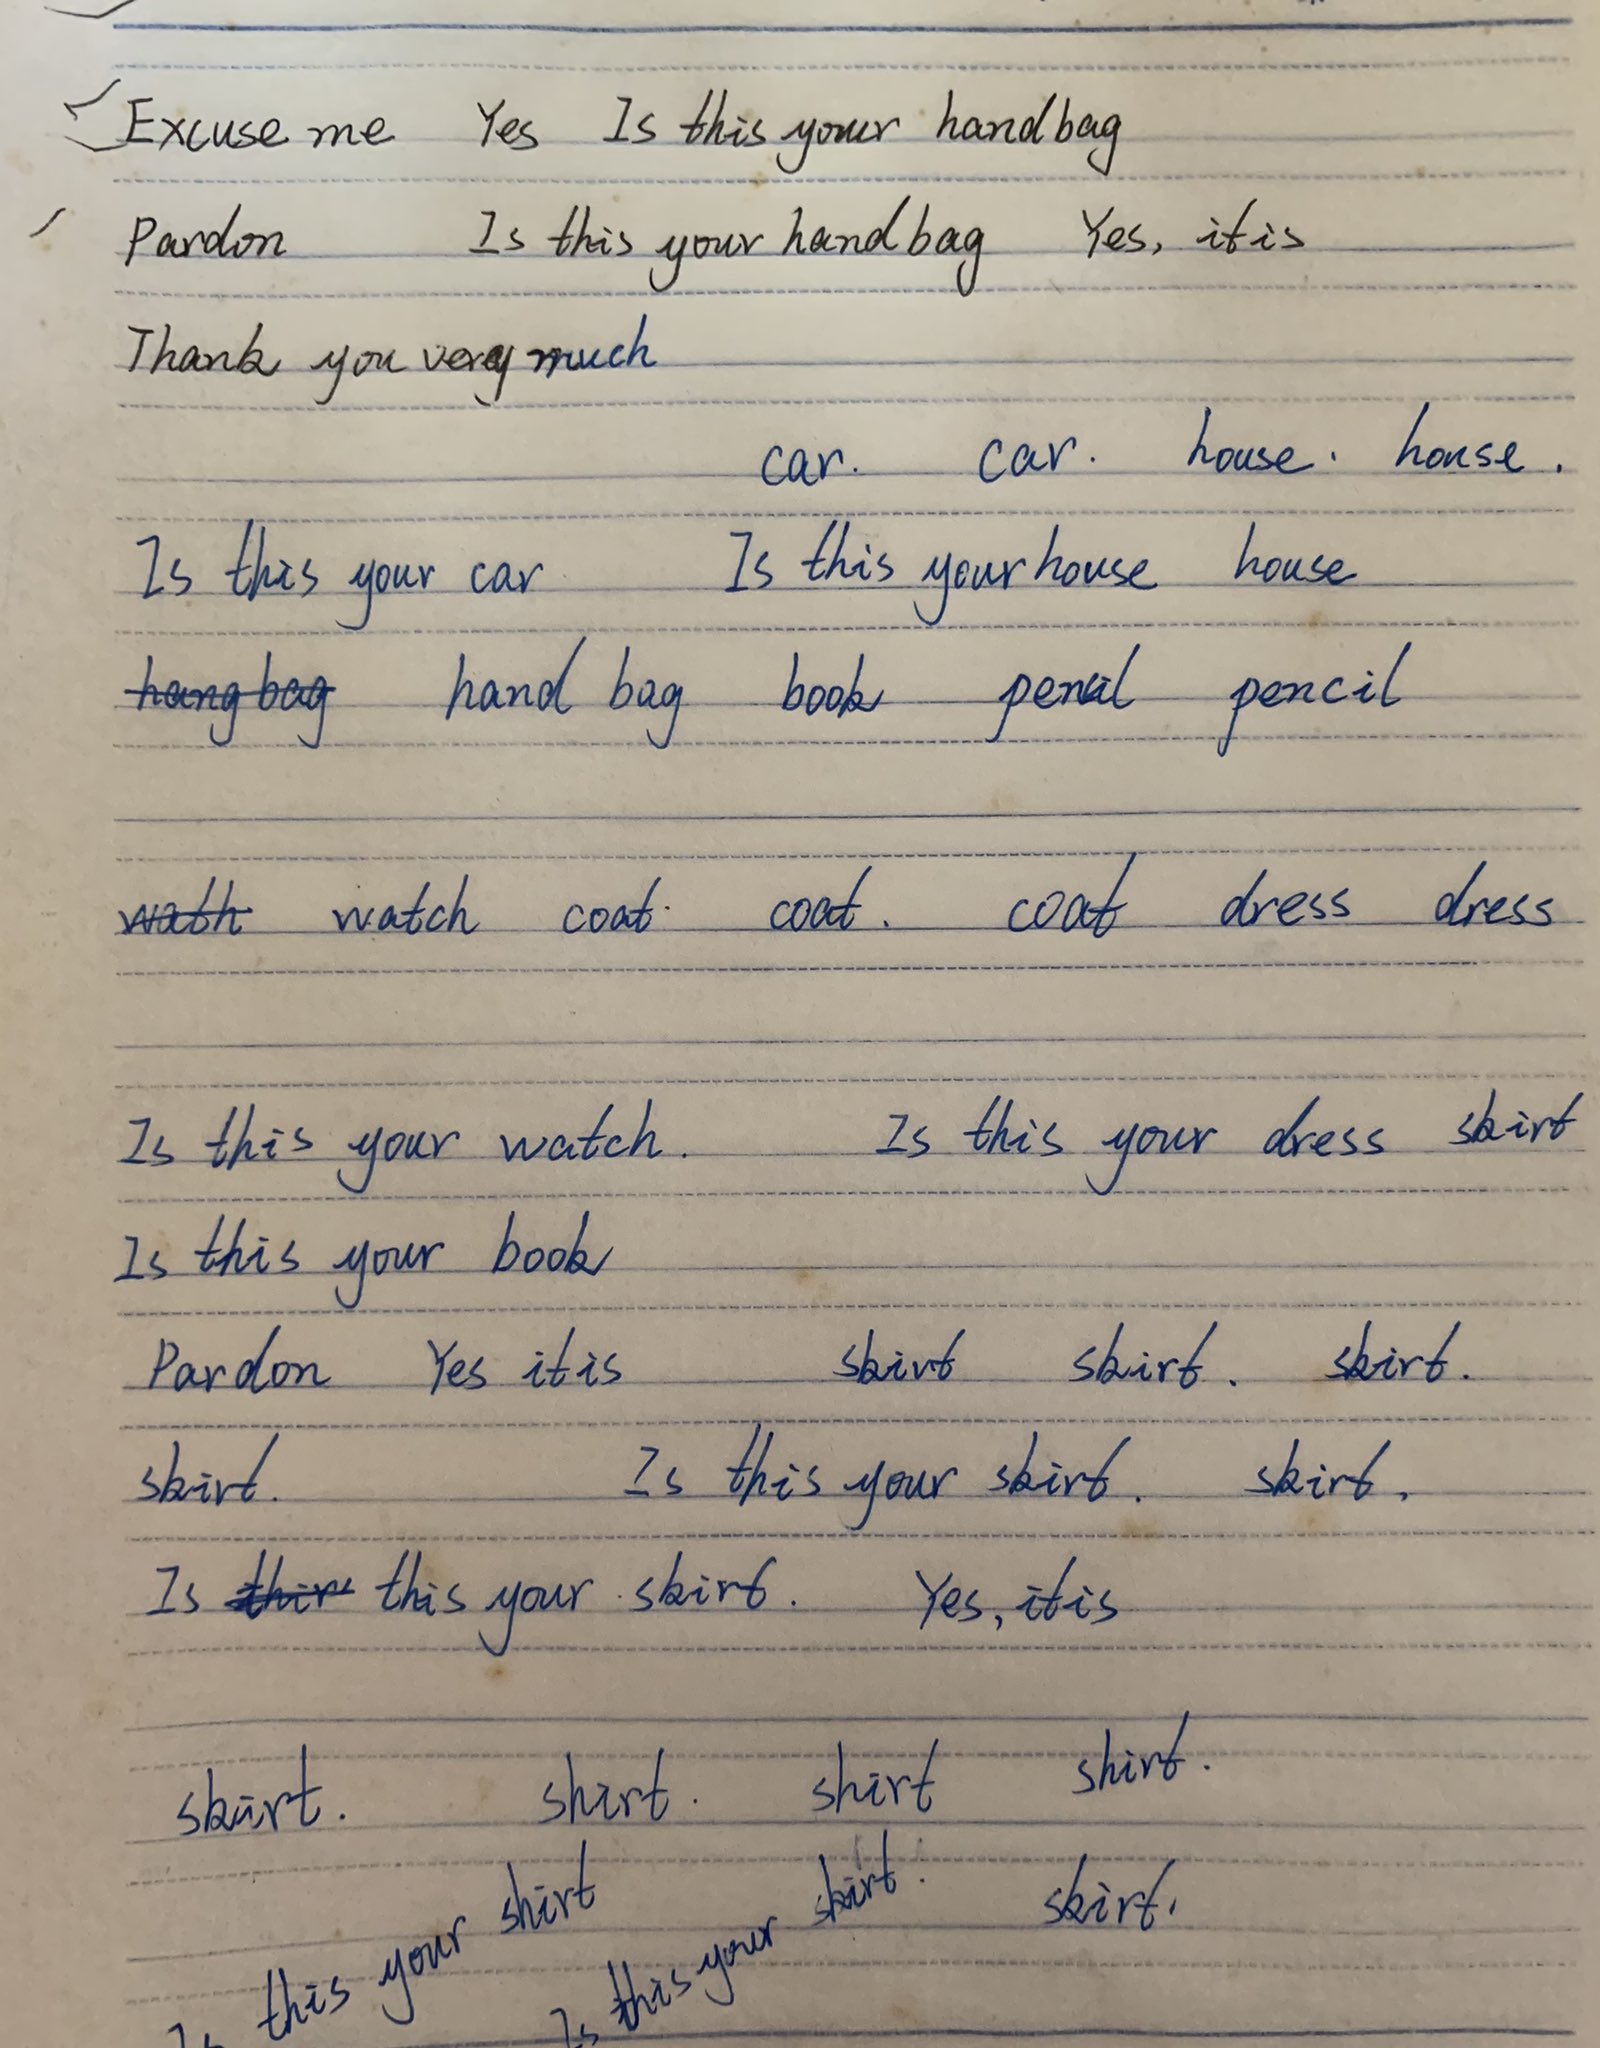 Excuse me Yes Is this your handbag
Pardon Is this your handbag Yes, it is
Thank you very much
car. car. house. house.
Is this your car Is this your house house
hang bag hand bag book pencil pencil
wath watch coat. coat. coat dress dress
Is this your watch. Is this your dress skirt
Is this your book
Pardon Yes it is skirt skirt. skirt.
skirt. Is this your skirt. skirt.
Is this your skirt. Yes, it is
skirt. shirt. shirt shirt.
Is this your shirt Is this your skirt. skirt.